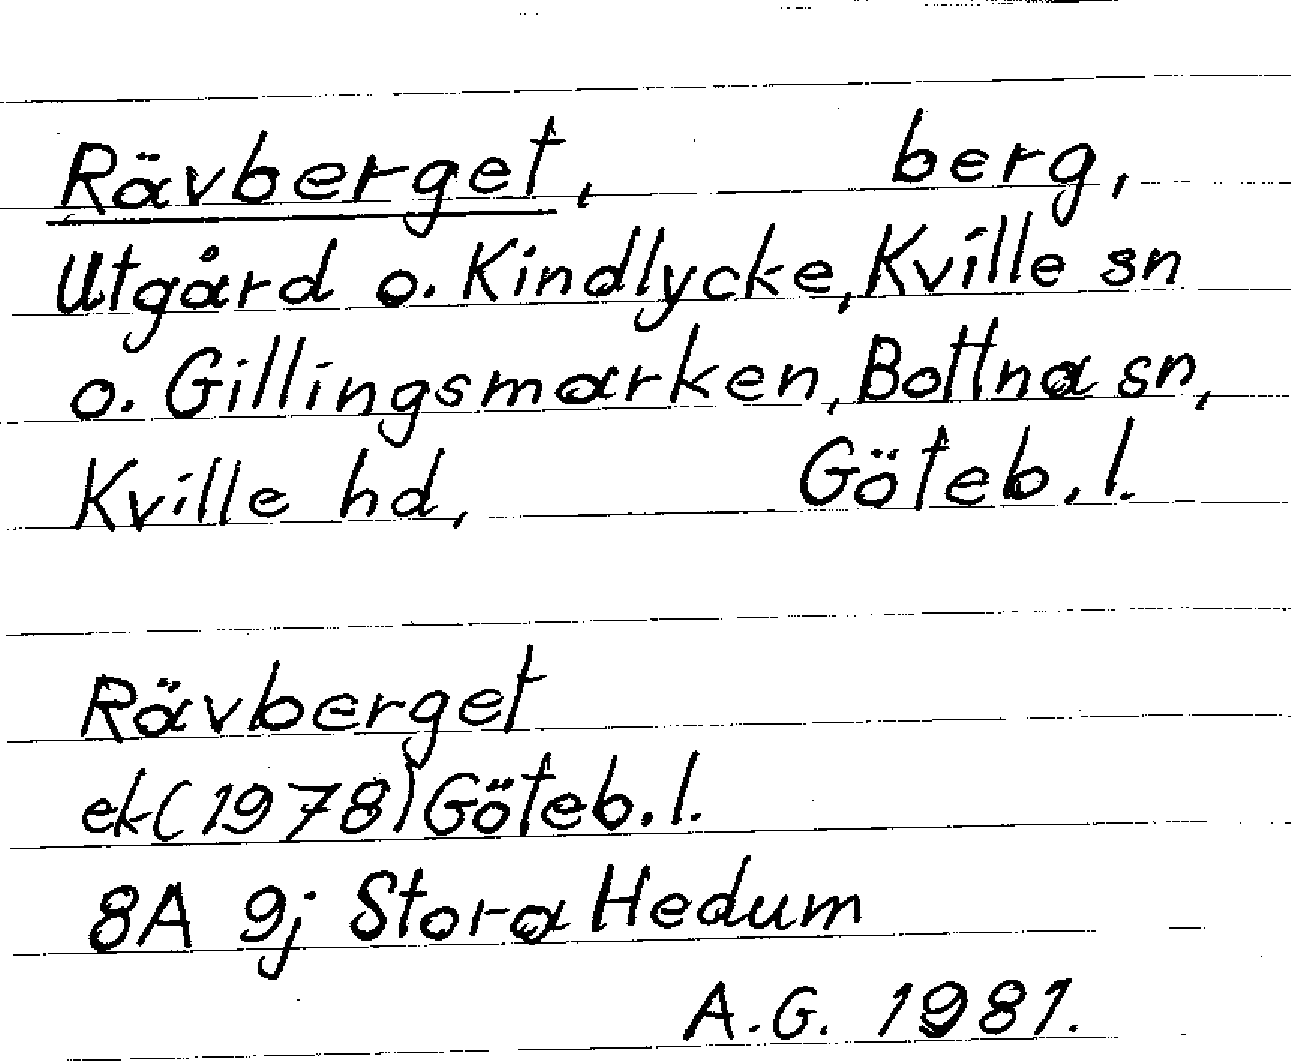 Rävberget, berg,
Utgård o. Kindlycke, Kville sn
o. Gillingsmarken, Bottna sn,
Kville hd, Göteb. l.
Rävberget
ek (1978) Göteb. l.
8A 9j Stora Hedum
A.G. 1981.